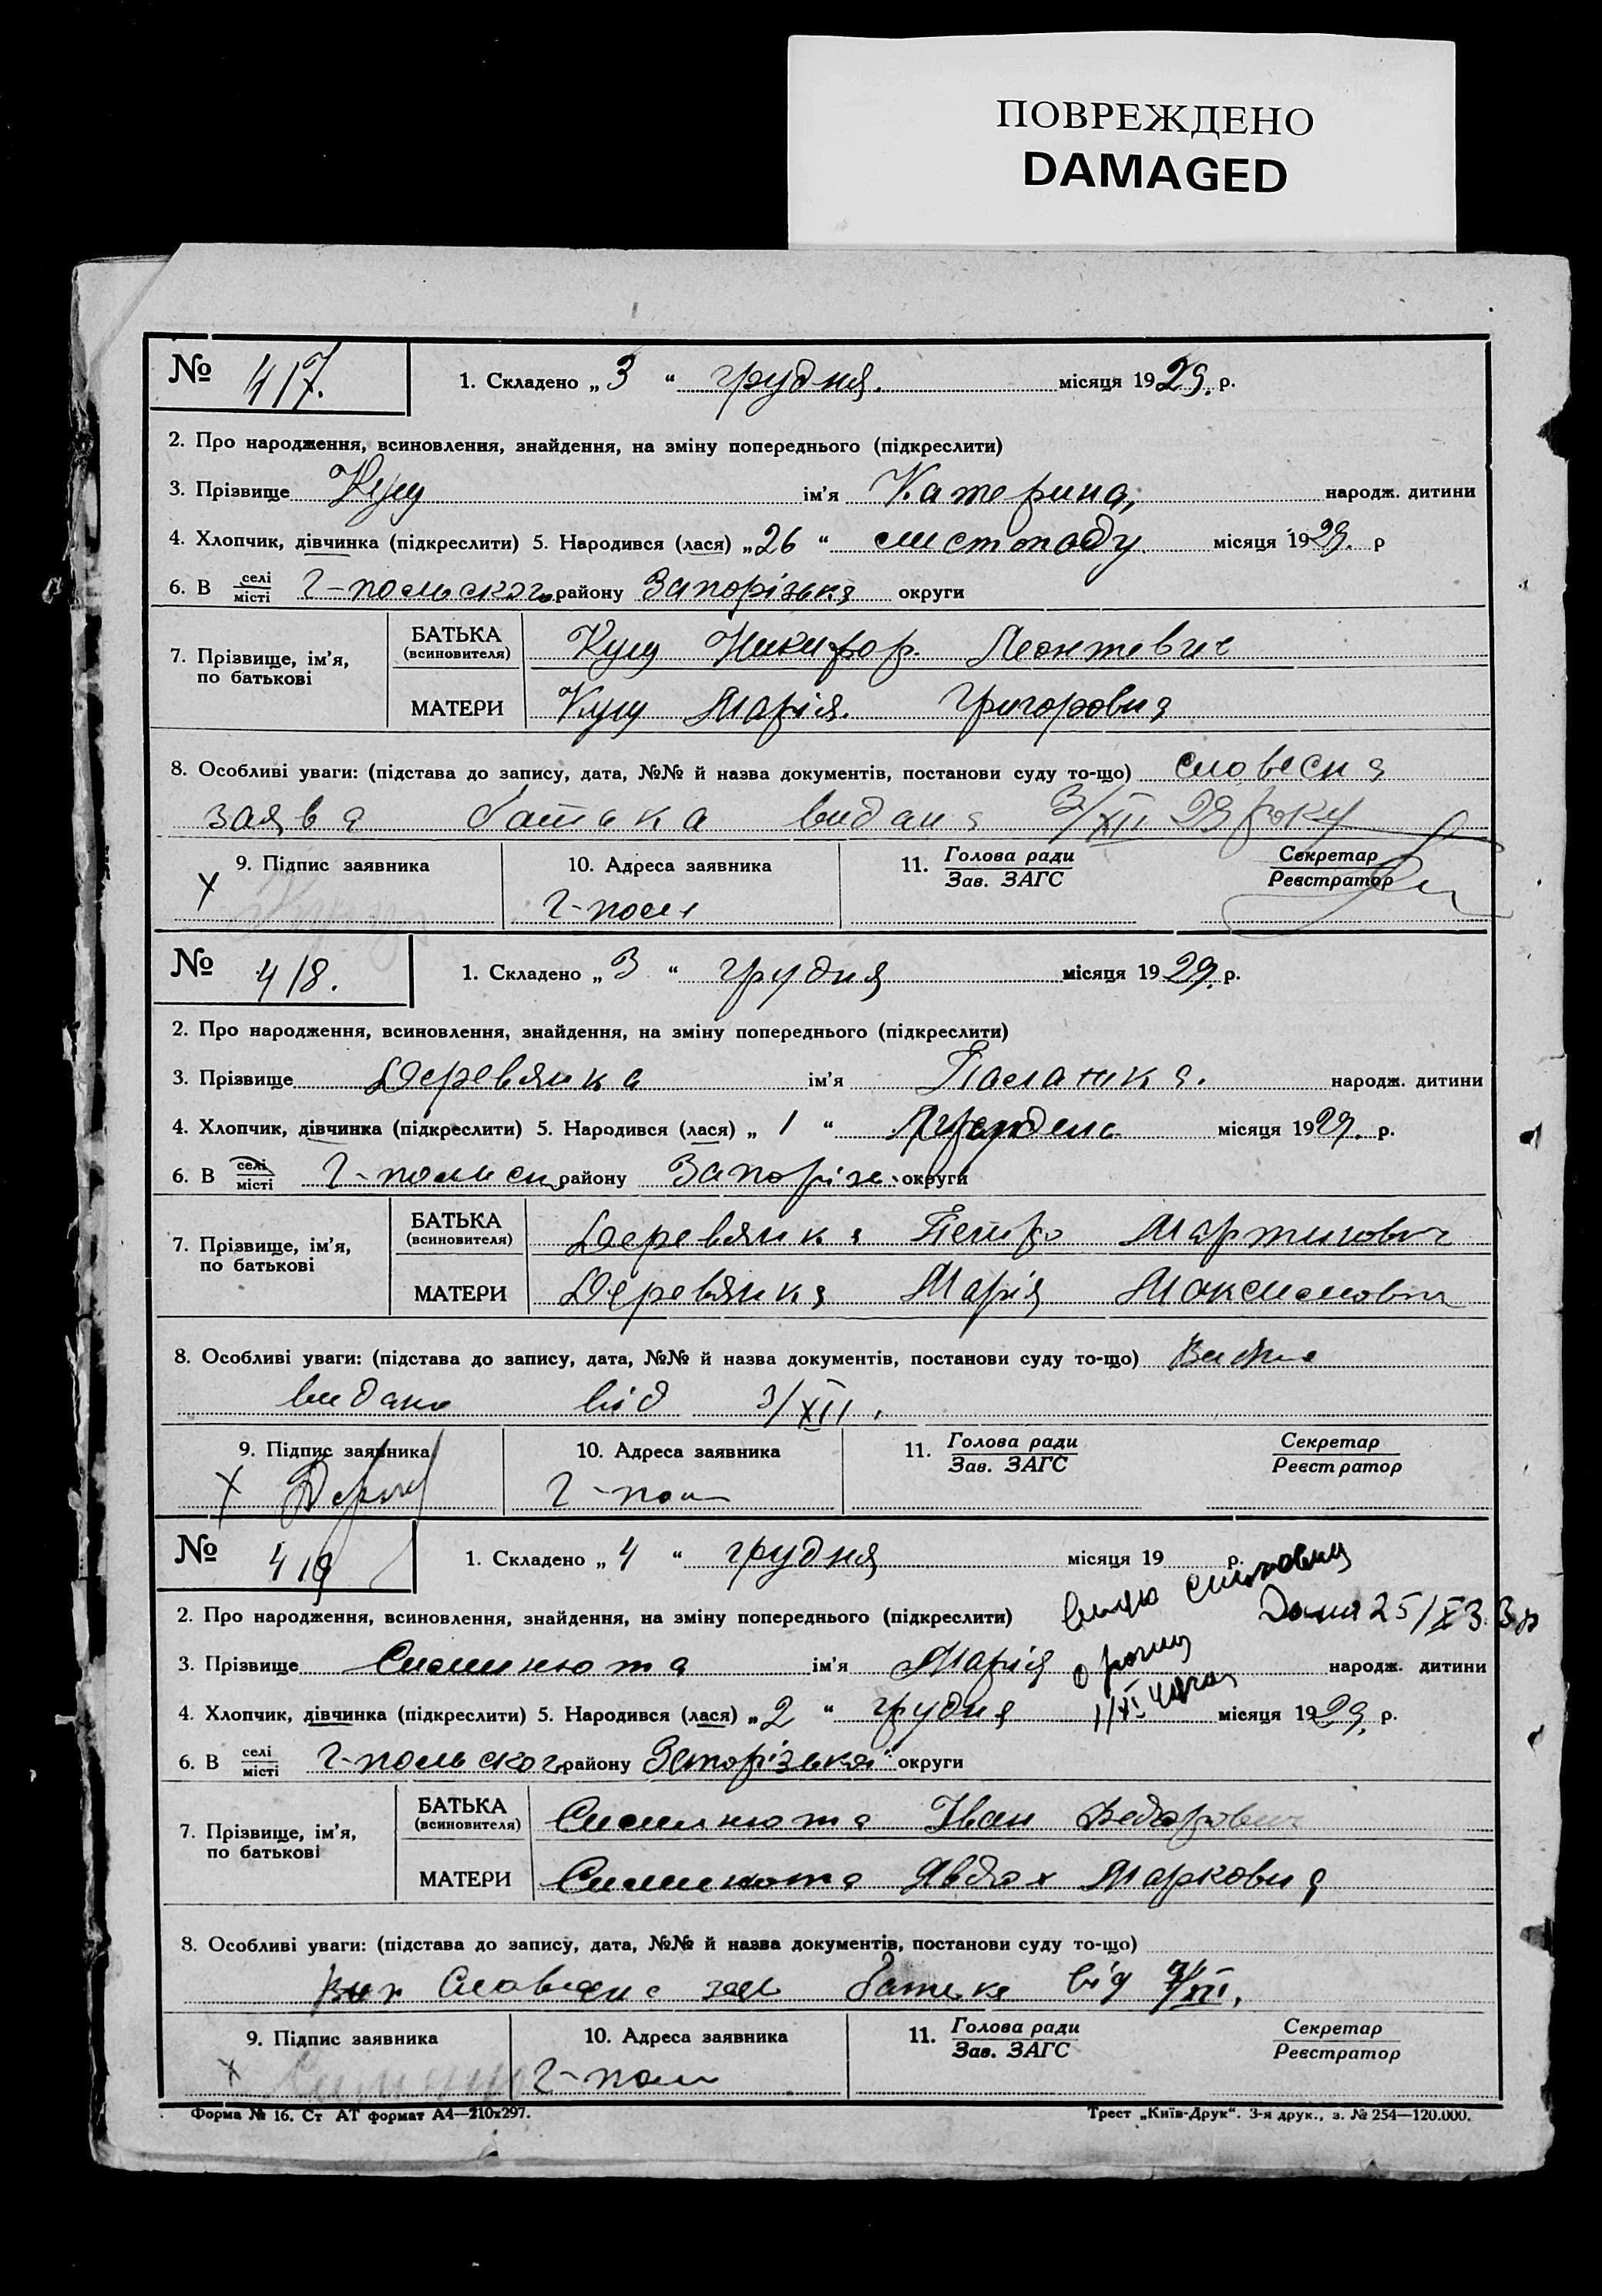 ПОВРЕЖДЕНО
DAMAGED
№ 417. 1. Складено „ 3 “ грудня. місяця 1929. р.
2. Про народження, всиновлення, знайдення, на зміну попереднього (підкреслити)
3. Прізвище Кущ ім’я Катерина, народж. дитини
4. Хлопчик, дівчинка (підкреслити) 5. Народився (лася) „26 “ листопаду місяця 1929. р
6. В селі місті Г-польского району Запорізька округи
7. Прізвище, ім’я, по батькові БАТЬКА (всиновителя) Кущ Никифор. Леонтевич
МАТЕРИ Кущ Марія. Григоровна
8. Особливі уваги: (підстава до запису, дата, №№ й назва документів, постанови суду то-що) словесна
заява батька видана 3/XII 29 року
9. Підпис заявника 10. Адреса заявника 11. Голова ради Зав. ЗАГС Секретар Реєстратор
Х Г-поле
№ 418. 1. Складено „ 3 “ грудня місяця 1929. р.
2. Про народження, всиновлення, знайдення, на зміну попереднього (підкреслити)
3. Прізвище Деревянка ім’я народж. дитини
4. Хлопчик, дівчинка (підкреслити) 5. Народився (лася) „ 1 “ місяця 1929. р.
6. В селі місті Г-польск району Запоріж округи
7. Прізвище, ім’я, по батькові БАТЬКА (всиновителя) Деревянка Петро Мартинович
МАТЕРИ Деревянка Марія Максимовна
8. Особливі уваги: (підстава до запису, дата, №№ й назва документів, постанови суду то-що)
видано від 3/XII.
9. Підпис заявника 10. Адреса заявника 11. Голова ради Зав. ЗАГС Секретар Реєстратор
Х Г-пол
№ 419 1. Складено „ 4 “ грудня місяця 19 р.
2. Про народження, всиновлення, знайдення, на зміну попереднього (підкреслити) 25/X 33 р
3. Прізвище ім’я Марія народж. дитини
4. Хлопчик, дівчинка (підкреслити) 5. Народився (лася) „ 2 “ грудня місяця 1929. р.
6. В селі місті Г-польског району Запорізької округи
7. Прізвище, ім’я, по батькові БАТЬКА (всиновителя) Іван Федорович
МАТЕРИ Явдох Марковна
8. Особливі уваги: (підстава до запису, дата, №№ й назва документів, постанови суду то-що)
Словесна батька від
9. Підпис заявника 10. Адреса заявника 11. Голова ради Зав. ЗАГС Секретар Реєстратор
х Г-пол
Форма № 16. Ст АТ формат А4—210х297. Трест „Київ-Друк“. 3-я друк., з. № 254—120.000.